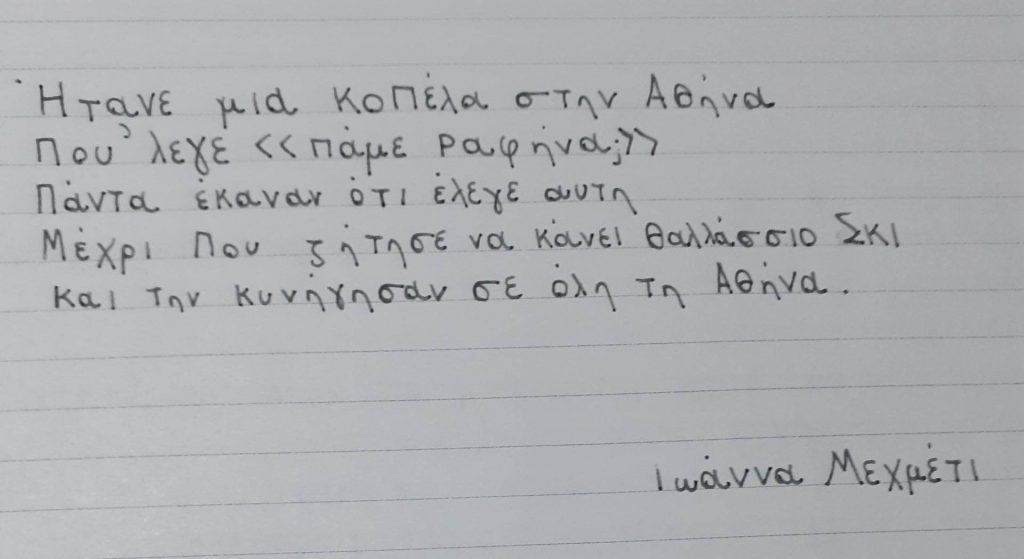 Ήτανε μια κοπέλα στην Αθήνα
Που 'λεγε <<πάμε Ραφήνα;>>
Πάντα έκαναν ότι έλεγε αυτη
Μέχρι που ζήτησε να κάνει θαλλάσσιο Σκι
Και την κυνήγησαν σε όλη τη Αθήνα.
Ιωάννα Μεχμέτι